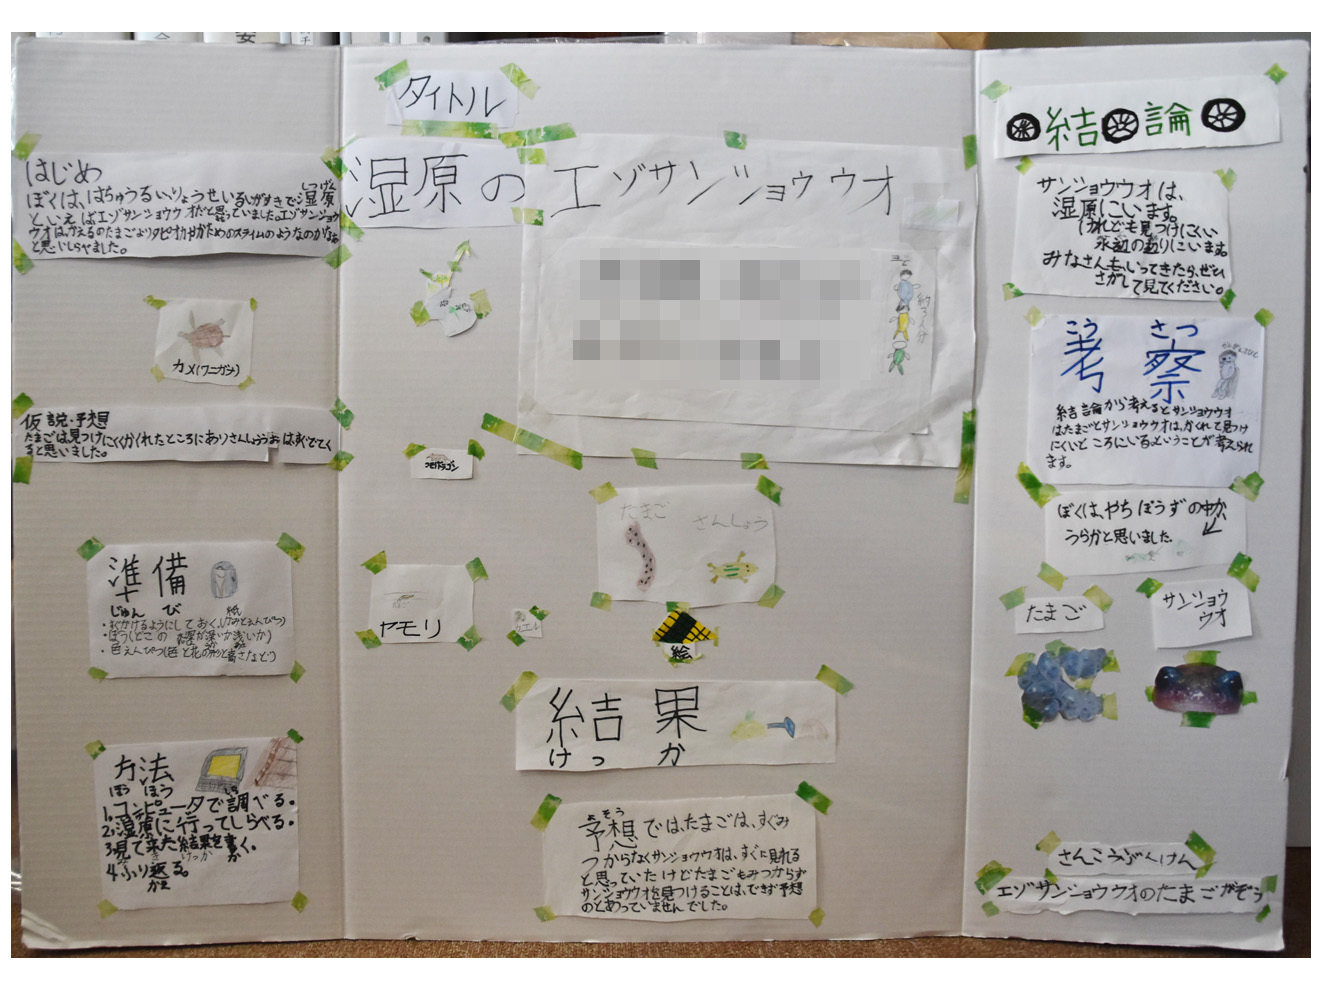 はじめ
ぼくは、はちゅうるいりょうせいるいがすきで湿原
しつげん
といえばエゾサンショウウオだと思っていました。エゾサンショウ
ウオは、かえるのたまごよりタピオカやかためのスライムのようなのかなぁ
と思いしらやました。
カメ(ワニガメ)
仮説・予想
たまごは見つけにくくかくれたところにありさんしょうおはすぐでてく
ると思いました。
準備
じゅんび
紙
・わかけるようにしておく。(かみとえんぴつ)
・ぼう(どこの水深が深いか浅いか)
・色えんぴつ(色と花の形と高さなどう)
方法
ほうほう
1.コンピュータで調べる。
2.湿原に行ってしらべる。
3.見て来た結果を書く。
けっか
か
4.ふり返る。
かえ
タイトル
湿原のエゾサンショウウオ
ヤモリ
カエル
たまご
さんしょう
絵
結果
けっか
よそう
予想では、たまごは、すぐみ
つからなくサンショウウオは、すぐに見れる
と思っていたけどたまごもみつからず
サンショウウオを見つけることは、できず予想
のとあっていませんでした。
結論
サンショウウオは、
湿原にいます。
けれども見つけにくい
水辺の辺りにいます。
みなさんも、いってきたら、ぜひ
さがして見てください。
こうさつ
考察
結論から考えるとサンショウウオ
はたまごとサンショウウオは、かくれて見つけ
にくいところにいる。ということが考えられ
ます。
ぼくは、やちぼうずの中か、
うらかと思いました。
たまご
サンショウ
ウオ
さんこうぶんけん
エゾサンショウウオのたまごがぞう